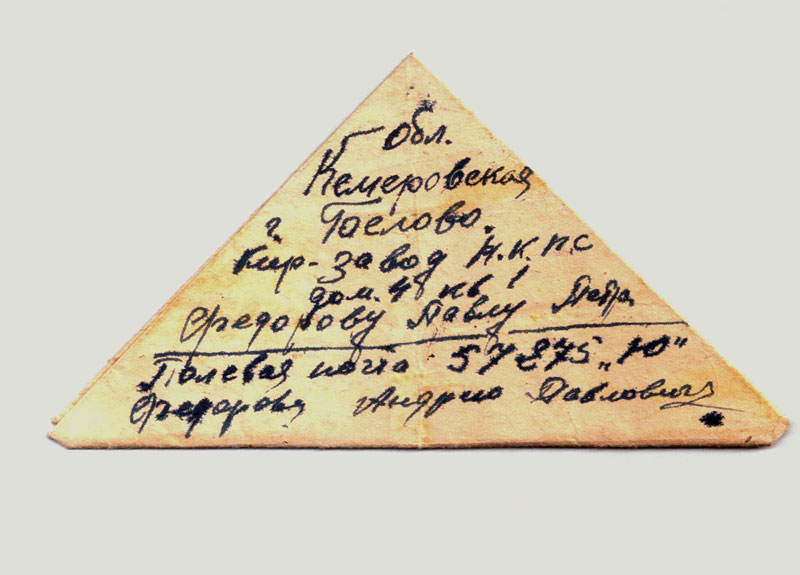 Обл.
Кемеровская
г. Гослово.
Кир-завод Н.К.П.С
дом. 4 кв 1
Федорову Павлу Петр
Полевая почта 57275 „Ю"
Федорова Андрио Павлович